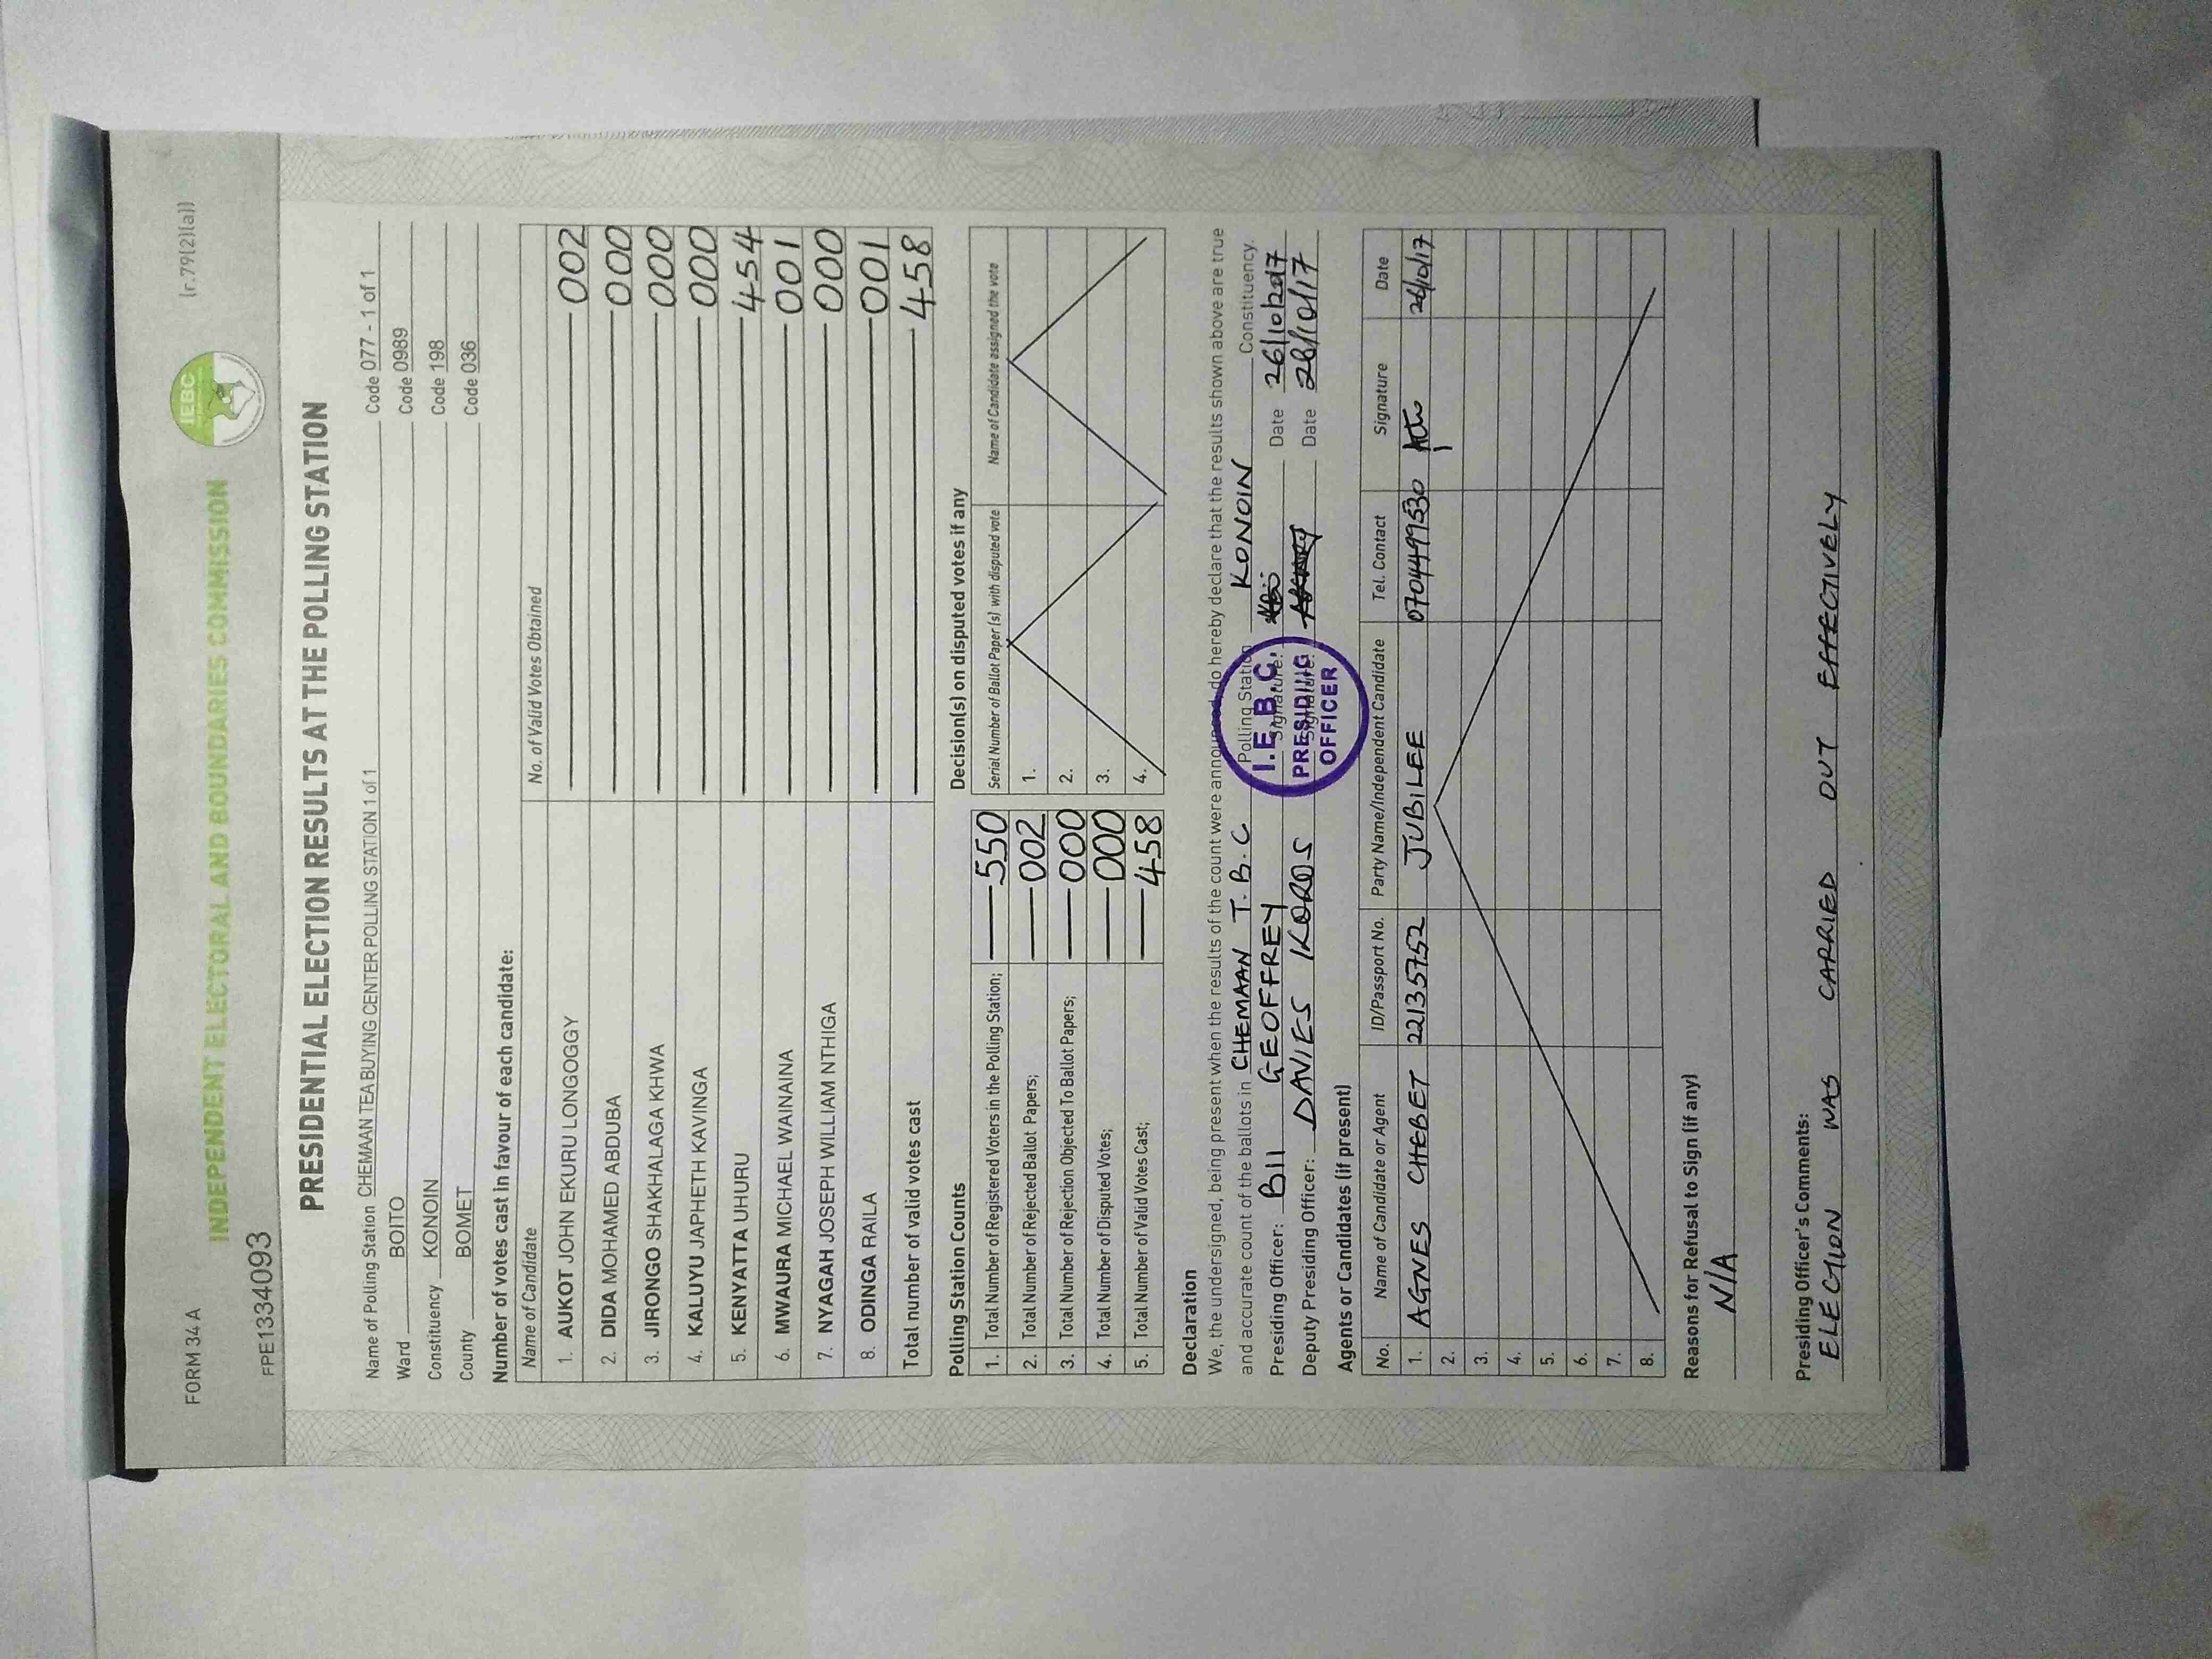 FORM 34 A
(r.79(2)(a))
INDEPENDENT ELECTORAL AND BOUNDARIES COMMISSION
IEBC
FPE1334093
PRESIDENTIAL ELECTION RESULTS AT THE POLLING STATION
Name of Polling Station CHEMAAN TEA BUYING CENTER POLLING STATION 1 of 1 Code 077 - 1 of 1
Ward BOITO Code 0989
Constituency KONOIN Code 198
County BOMET Code 036
Number of votes cast in favour of each candidate:
Name of Candidate No. of Valid Votes Obtained
1. AUKOT JOHN EKURU LONGOGGY 002
2. DIDA MOHAMED ABDUBA 000
3. JIRONGO SHAKHALAGA KHWA 000
4. KALUYU JAPHETH KAVINGA 000
5. KENYATTA UHURU 454
6. MWAURA MICHAEL WAINAINA 001
7. NYAGAH JOSEPH WILLIAM NTHIGA 000
8. ODINGA RAILA 001
Total number of valid votes cast 458
Polling Station Counts
1. Total Number of Registered Voters in the Polling Station; 550
2. Total Number of Rejected Ballot Papers; 002
3. Total Number of Rejection Objected To Ballot Papers; 000
4. Total Number of Disputed Votes; 000
5. Total Number of Valid Votes Cast; 458
Decision(s) on disputed votes if any
Serial Number of Ballot Paper(s) with disputed vote Name of Candidate assigned the vote
1.
2.
3.
4.
Declaration
We, the undersigned, being present when the results of the count were announced, do hereby declare that the results shown above are true
and accurate count of the ballots in CHEMAAN T.B.C Polling Station KONOIN Constituency.
Presiding Officer: BII GEOFFREY Signature: Date 26/10/2017
Deputy Presiding Officer: DAVIES KOROS Signature: Date 26/10/17
I.E.B.C.
PRESIDING
OFFICER
Agents or Candidates (if present)
No. Name of Candidate or Agent ID/Passport No. Party Name/Independent Candidate Tel. Contact Signature Date
1. AGNES CHEBET 22135752 JUBILEE 0704499530 26/10/17
2.
3.
4.
5.
6.
7.
8.
Reasons for Refusal to Sign (if any)
N/A
Presiding Officer's Comments:
ELECTION WAS CARRIED OUT EFFECTIVELY